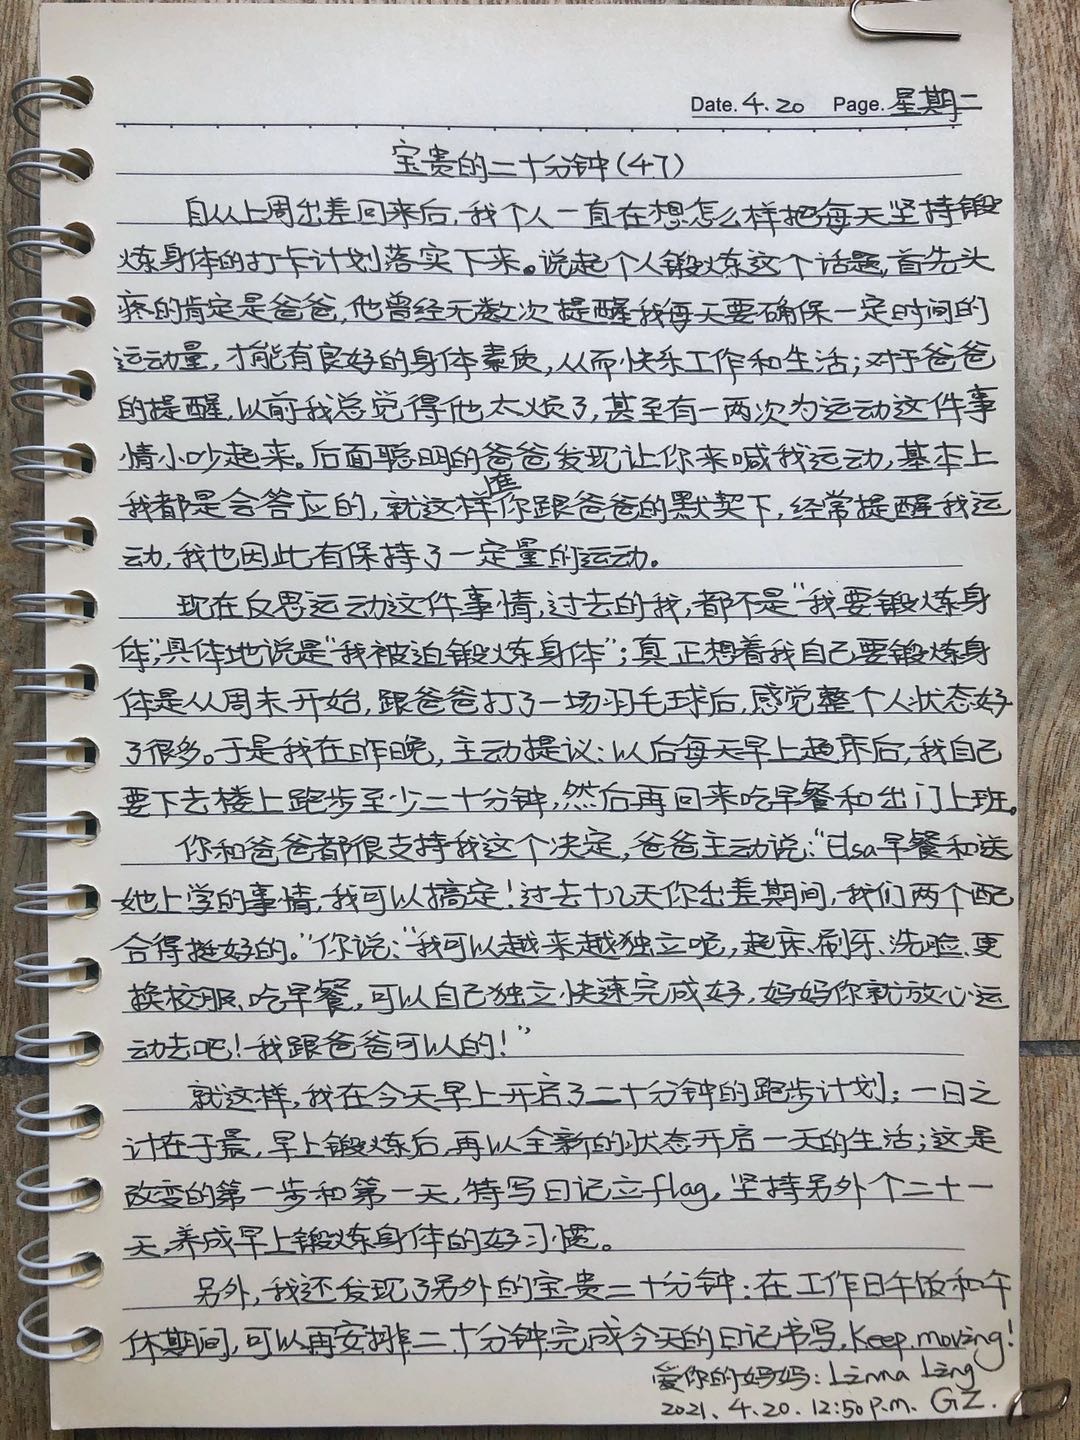 Date. 4.20 Page. 星期二
宝贵的二十分钟(47)
自从上周出差回来后,我个人一直在想怎么样把每天坚持锻
炼身体的打卡计划落实下来。说起个人锻炼这个话题,首先头
疼的肯定是爸爸,他曾经无数次提醒我每天要确保一定时间的
运动量,才能有良好的身体素质,从而快乐工作和生活;对于爸爸
的提醒,以前我总觉得他太烦了,甚至有一两次为运动这件事
情小吵起来。后面聪明的爸爸发现让你来喊我运动,基本上
我都是会答应的,就这样在你跟爸爸的默契下,经常提醒我运
动,我也因此有保持了一定量的运动。
现在反思运动这件事情,过去的我,都不是“我要锻炼身
体”,具体地说是“我被迫锻炼身体”;真正想着我自己要锻炼身
体是从周末开始,跟爸爸打了一场羽毛球后,感觉整个人状态好
了很多。于是我在昨晚,主动提议:以后每天早上起床后,我自己
要下去楼上跑步至少二十分钟,然后再回来吃早餐和出门上班。
你和爸爸都很支持我这个决定,爸爸主动说:“Elsa早餐和送
她上学的事情,我可以搞定!过去十几天你出差期间,我们两个配
合得挺好的。”你说:“我可以越来越独立呢,起床、刷牙、洗脸、更
换校服、吃早餐,可以自己独立快速完成好,妈妈你就放心运
动去吧!我跟爸爸可以的!”
就这样,我在今天早上开启了二十分钟的跑步计划;一日之
计在于晨,早上锻炼后,再以全新的状态开启一天的生活;这是
改变的第一步和第一天,特写日记立flag,坚持另外个二十一
天,养成早上锻炼身体的好习惯。
另外,我还发现了另外的宝贵二十分钟:在工作日午饭和午
休期间,可以再安排二十分钟完成今天的日记书写,Keep moving!
爱你的妈妈:Linna Ling
2021.4.20.12:50p.m. GZ.